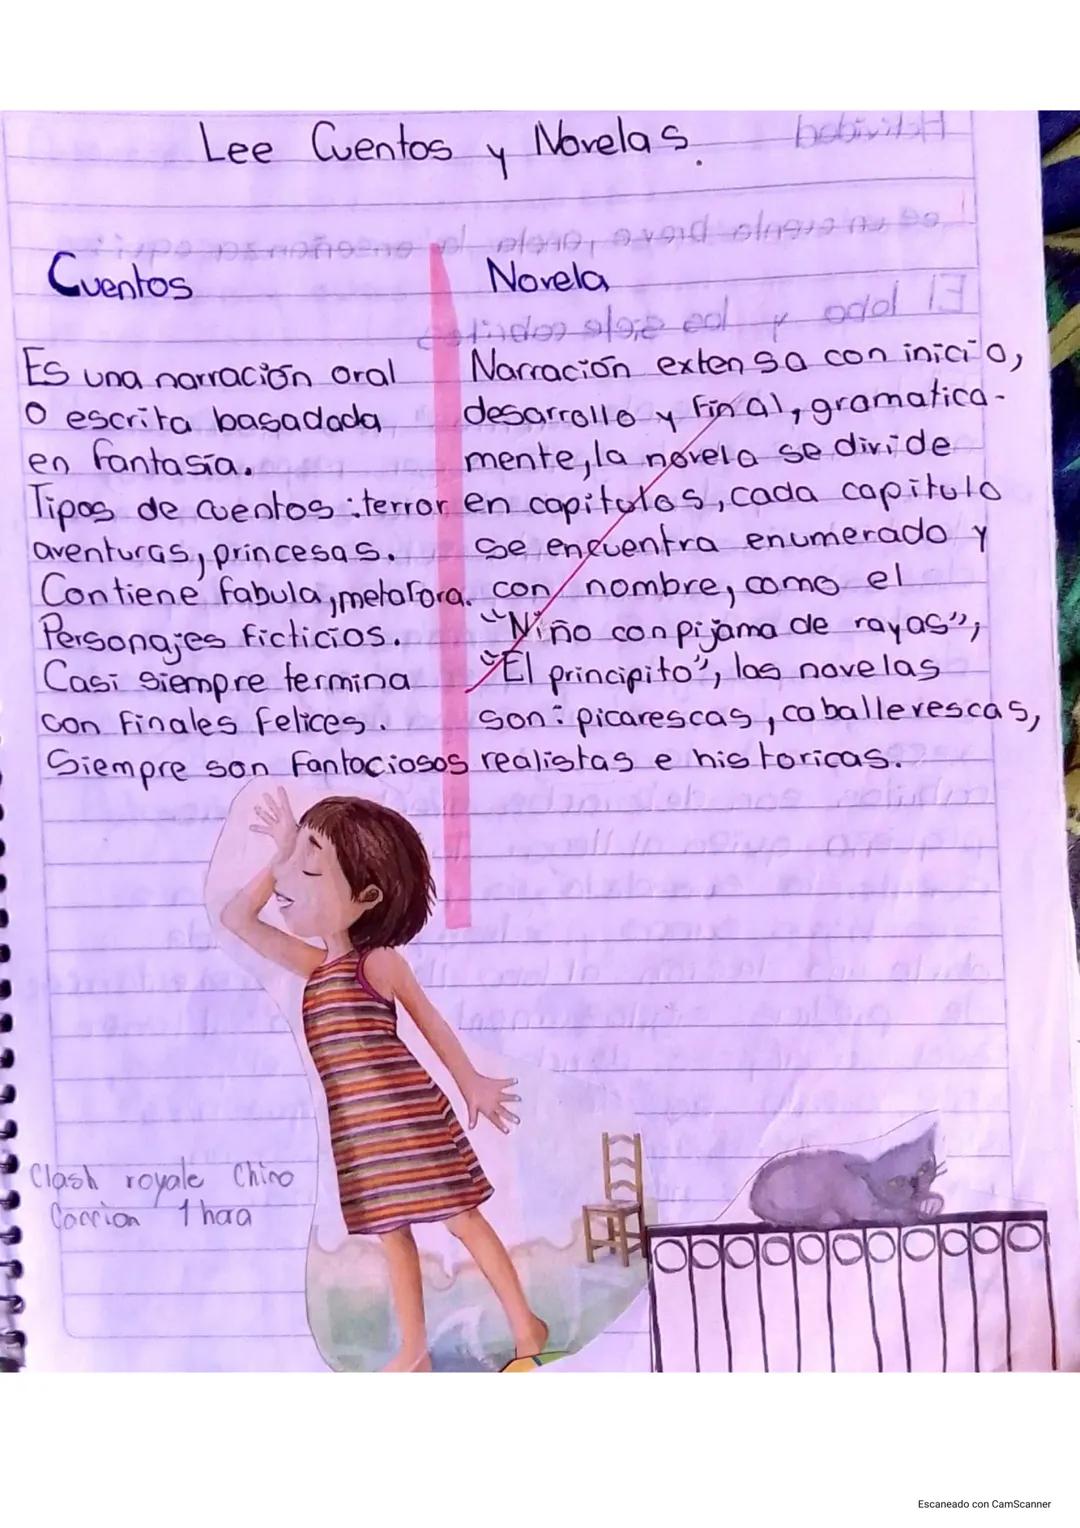 Lee Cuentos y Novelas.
Cuentos
Es una narración oral
o escrita basadada
en fantasía.
Tipos de cuentos: terror
aventuras, princesas.
Contiene fabula, metafora.
Personajes ficticios.
Casi siempre termina
con finales felices.
Siempre son fantaciosos
Novela
Narración extensa con inicio,
desarrollo y final, gramatica-
mente, la novela se divide
en capitulos, cada capitulo
se encuentra enumerado y
con nombre, como el
"Niño con pijama de rayas",
"El principito", las novelas
son: picarescas, caballerescas,
realistas e historicas.
Clash royale Chino
1 hora
Escaneado con CamScanner